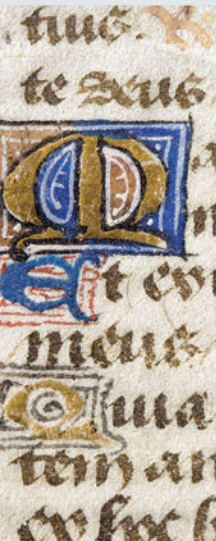 tuus.
te deus
M
Et ex
meus
Quia
tem an
ex hoc